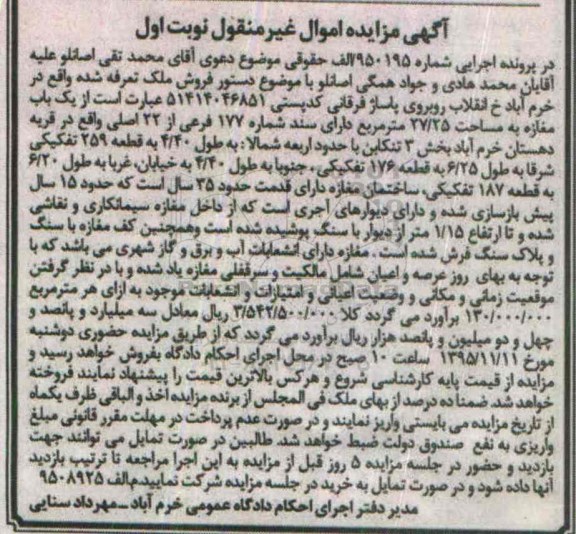 آگهی مزایده اموال غیر منقول نوبت اول
در پرونده اجرایی شماره ۹۵۰۱۹۵/الف حقوقی موضوع دعوی آقای محمد تقی اصانلو علیه
آقایان محمد هادی و جواد همگی اصانلو با موضوع دستور فروش ملک تعرفه شده واقع در
خرم آباد خ انقلاب روبروی پاساژ فرقانی کدپستی ۵۱۴۱۴۰۴۶۸۵۱ عبارت است از یک باب
مغازه به مساحت ۲۷/۲۵ مترمربع دارای سند شماره ۱۷۷ فرعی از ۲۲ اصلی واقع در قریه
دهستان خرم آباد بخش ۳ تنکابن با حدود اربعه شمالا: به طول ۴/۴۰ به قطعه ۲۵۹ تفکیکی
شرقا به طول ۶/۲۵ به قطعه ۱۷۶ تفکیکی، جنوبا به طول ۴/۴۰ به خیابان، غربا به طول ۶/۲۰
به قطعه ۱۸۷ تفکیکی، ساختمان مغازه دارای قدمت حدود ۳۵ سال است که حدود ۱۵ سال
پیش بازسازی شده و دارای دیوارهای آجری است که از داخل مغازه سیمانکاری و نقاشی
شده و تا ارتفاع ۱/۱۵ متر از دیوار با سنگ پوشیده شده است وهمچنین کف مغازه با سنگ
و پلاک سنگ فرش شده است. مغازه دارای انشعابات آب و برق و گاز شهری می باشد که با
توجه به بهای روز عرصه و اعیان شامل مالکیت و سرقفلی مغازه یاد شده و با در نظر گرفتن
موقعیت زمانی و مکانی و وضعیت اعیانی و امتیازات و انشعابات موجود به ازای هر مترمربع
۱۳۰/۰۰۰/۰۰۰ برآورد می گردد کلا ۳/۵۴۲/۵۰۰/۰۰۰ ریال معادل سه میلیارد و پانصد و
چهل و دو میلیون و پانصد هزار ریال برآورد می گردد که از طریق مزایده حضوری دوشنبه
مورخ ۱۳۹۵/۱۱/۱۱ ساعت ۱۰ صبح در محل اجرای احکام دادگاه بفروش خواهد رسید و
مزایده از قیمت پایه کارشناسی شروع و هرکس بالاترین قیمت را پیشنهاد نمایند فروخته
خواهد شد. ضمنا ده درصد از بهای ملک فی المجلس از برنده مزایده اخذ و الباقی ظرف یکماه
از تاریخ مزایده می بایستی واریز نمایند و در صورت عدم پرداخت در مهلت مقرر قانونی مبلغ
واریزی به نفع صندوق دولت ضبط خواهد شد. طالبین در صورت تمایل می توانند جهت
بازدید و حضور در جلسه مزایده ۵ روز قبل از مزایده به این اجرا مراجعه تا ترتیب بازدید
آنها داده شود و در صورت تمایل به خرید در جلسه مزایده شرکت نمایید.م.الف ۹۵۰۸۹۲۵
مدیر دفتر اجرای احکام دادگاه عمومی خرم آباد _ مهرداد سنایی